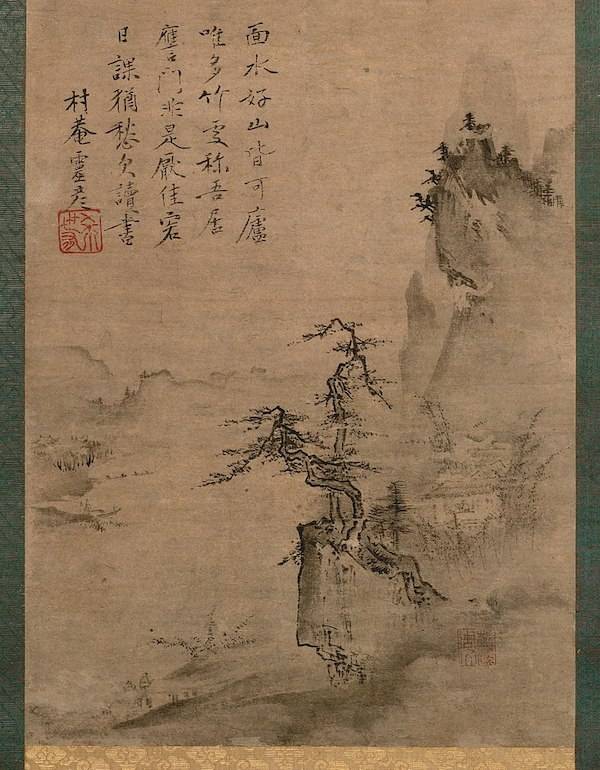 面水好山皆可廬
唯多竹處称吾居
應門非是厭佳客
日課猶愁欠讀書
村菴霊彦